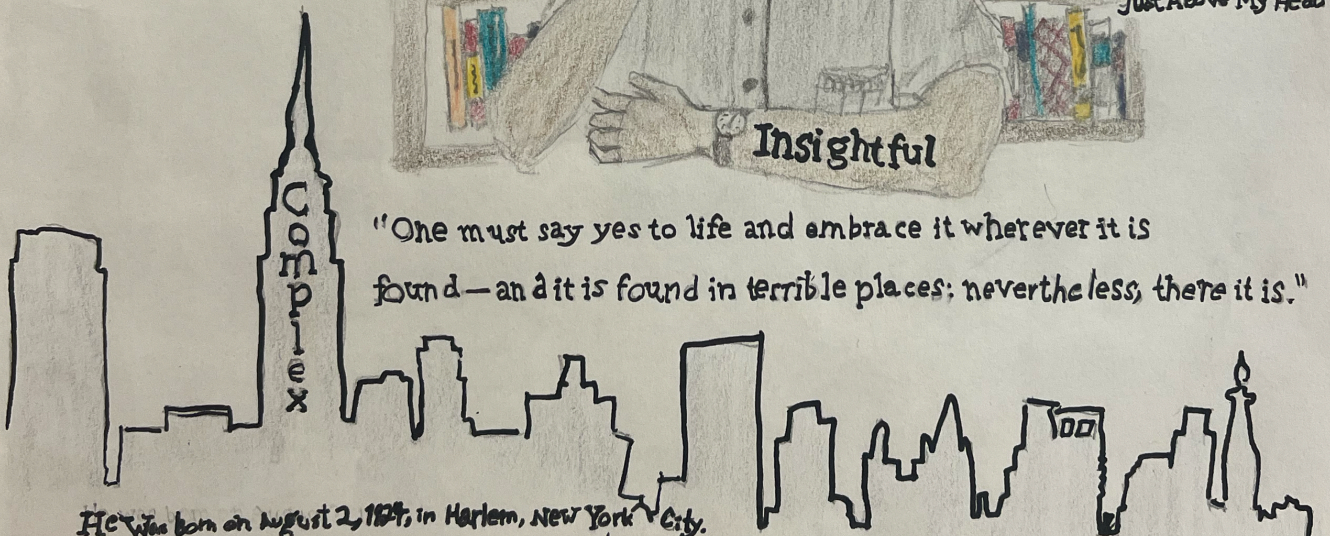 Just Above My Head
Insightful
Complex
"One must say yes to life and embrace it wherever it is
found—and it is found in terrible places; nevertheless, there it is."
He was born on August 2, 1924, in Harlem, New York City.